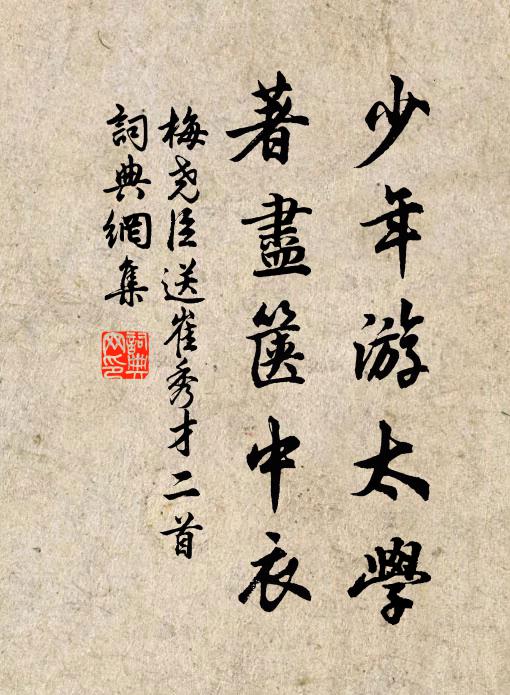 少年游太學
著盡篋中衣
梅堯臣送崔秀才二首
詞典網集
詞典網印